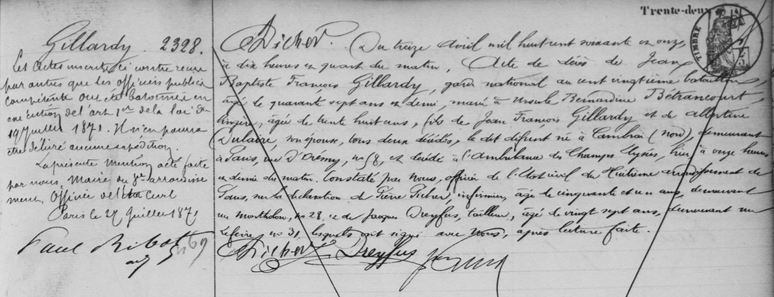 Trente-deux
TIMBRE
Gillardy. 2328.
Cet acte inscrit ci contre reçu
par autres que les officiers publics
compétents ont été bâtonnés en
exécution de l'art. 1er de la loi du
19 juillet 1871. Il n'en pourra
être délivré aucune expédition.
La présente mention a été faite
par nous, Maire du 8e arrondisse
ment, Officier de l'état civil
Paris le 27 Juillet 1871
Paul Ribot
Du treize avril mil huit cent soixante et onze
à dix heures un quart du matin, Acte de décès de Jean
Baptiste François Gillardy, garde national au cent vingtième bataillon
âgé de quarante sept ans et demi, marié à Ursule Bernardine Bétrancourt
lingère, agée de trente huit ans, fils de Jean François Gillardy et de Albertine
Dulaire, son épouse, tous deux décédés, le dit défunt né à Cambrai (nord), demeurant
à Paris, rue d'Oremy, no 8, est décédé à l'Ambulance des Champs Elysées, hier à onze heures
et demie du matin. Constaté par nous, officier de l'état civil du huitième arrondissement de
Paris, sur la déclaration de Pierre Picher, infirmier, âgé de cinquante et un ans, demeurant
rue Montholon, no 28, et de Jacques Dreyfus, tailleur, âgé de vingt sept ans, demeurant rue
no 31, lesquels ont signé avec Nous, après lecture faite.
Picher Dreyfus